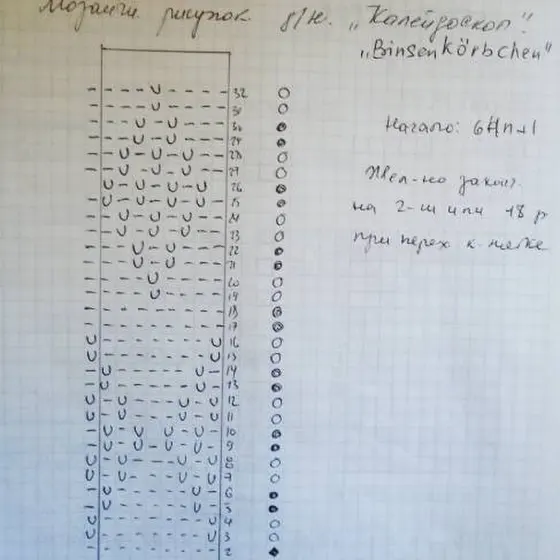 Мозаичн. рисунок д/н. „Калейдоскоп".
„Binsenkörbchen"
Начало: 6Hn+1
Жел-но законч.
на 2-ш или 18 р
при перех к
32
30
30
29
28
27
26
25
24
23
22
21
20
19
18
17
16
15
14
13
12
11
10
9
8
7
6
5
4
3
2